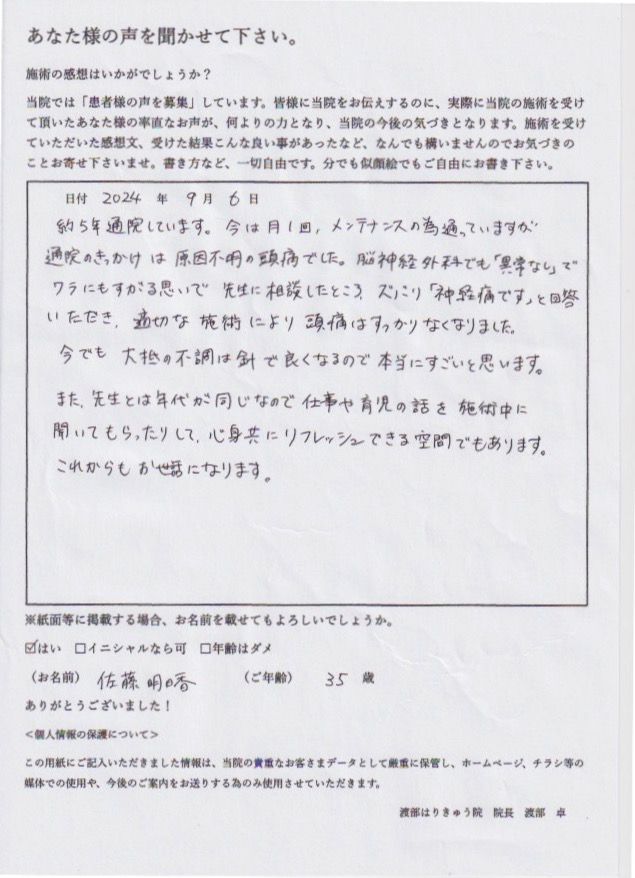 あなた様の声を聞かせて下さい。
施術の感想はいかがでしょうか？
当院では「患者様の声を募集」しています。皆様に当院をお伝えするのに、実際に当院の施術を受け
て頂いたあなた様の率直なお声が、何よりの力となり、当院の今後の気づきとなります。施術を受け
ていただいた感想文、受けた結果こんな良い事があったなど、なんでも構いませんのでお気づきの
ことお寄せ下さいませ。書き方など、一切自由です。分でも似顔絵でもご自由にお書き下さい。
日付 2024 年 9 月 6 日
約5年通院しています。今は月1回、メンテナンスの為通っていますが
通院のきっかけは原因不明の頭痛でした。脳神経外科でも「異常なし」で
ワラにもすがる思いで先生に相談したところ、ズバリ「神経痛です」と回答
いただき、適切な施術により頭痛はすっかりなくなりました。
今でも大抵の不調は針で良くなるので本当にすごいと思います。
また、先生とは年代が同じなので仕事や育児の話を施術中に
聞いてもらったりして、心身共にリフレッシュできる空間でもあります。
これからもお世話になります。
※紙面等に掲載する場合、お名前を載せてもよろしいでしょうか。
☑はい □イニシャルなら可 □年齢はダメ
（お名前） 佐藤明日香 （ご年齢） 35 歳
ありがとうございました！
＜個人情報の保護について＞
この用紙にご記入いただきました情報は、当院の貴重なお客さまデータとして厳重に保管し、ホームページ、チラシ等の
媒体での使用や、今後のご案内をお送りする為のみ使用させていただきます。
渡部はりきゅう院 院長 渡部 卓